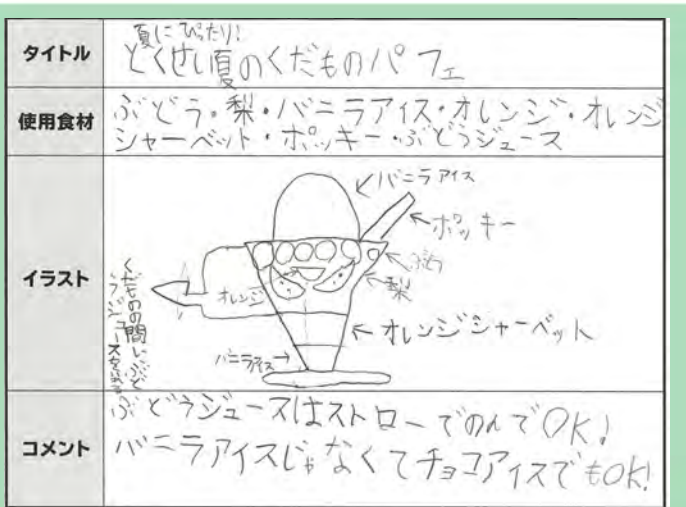 タイトル
夏にぴったり!
とくせい夏のくだものパフェ
使用食材
ぶどう・梨・バニラアイス・オレンジ・オレンジ
シャーベット・ポッキー・ぶどうジュース
イラスト
バニラアイス
ポッキー
ぶどう
梨
オレンジ
オレンジシャーベット
バニラアイス
くだものの間に、ぶど
うジュースを
コメント
ぶどうジュースはストローでのんでOK!
バニラアイスじゃなくてチョコアイスでもOK!